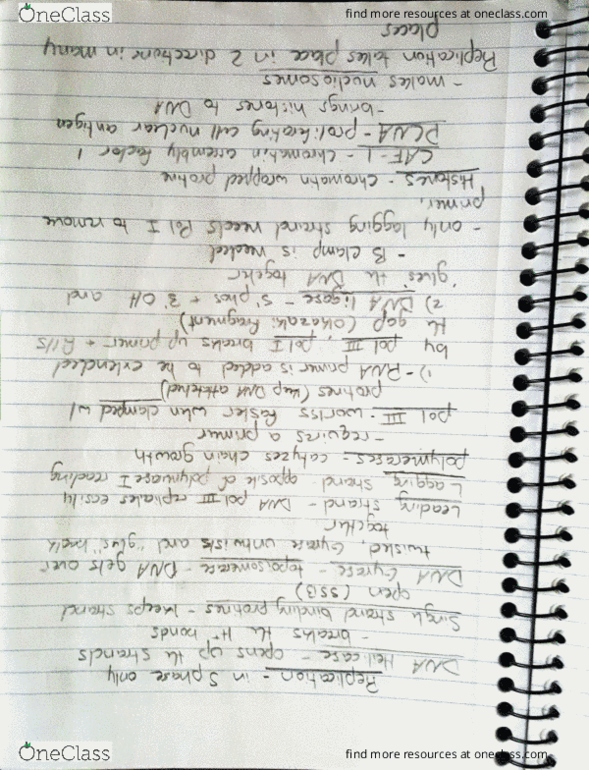 OneClass
find more resources at oneclass.com
Replication - in S phase only
DNA Helicase - opens up the strands
- breaks the H+ bonds
Single strand binding protines - keeps strand
open (SSB)
DNA Gyrase - topoisomerase - DNA gets over
twisted, Gyrase untwists and "glues" back
together
Leading strand - DNA pol III replicates easily
Lagging strand opposite of polymerase I reading
polymerases - catyzes chain growth
- requires a primer
pol III - works faster when clamped w/
protines (keep DNA attatched)
1) - RNA primer is added to be extended
by pol III, pol I breaks up primer + fills
the gap (okazaki fragment)
2) DNA ligase - 5' phos + 3' OH and
"glues" the DNA together
- B clamp is needed
- only lagging strand needs Pol I to remove
primer,
Histones - chromatin wrapped protine
CAF-1 - chromatin assembly factor 1
PCNA - proliferating cell nuclear antigen
- brings histones to DNA
- makes nucleosomes
Replication takes place in 2 directions in many
places
OneClass
find more resources at oneclass.com